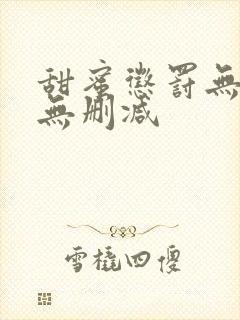 甜蜜懲罰無
無刪減
雪橇四傻